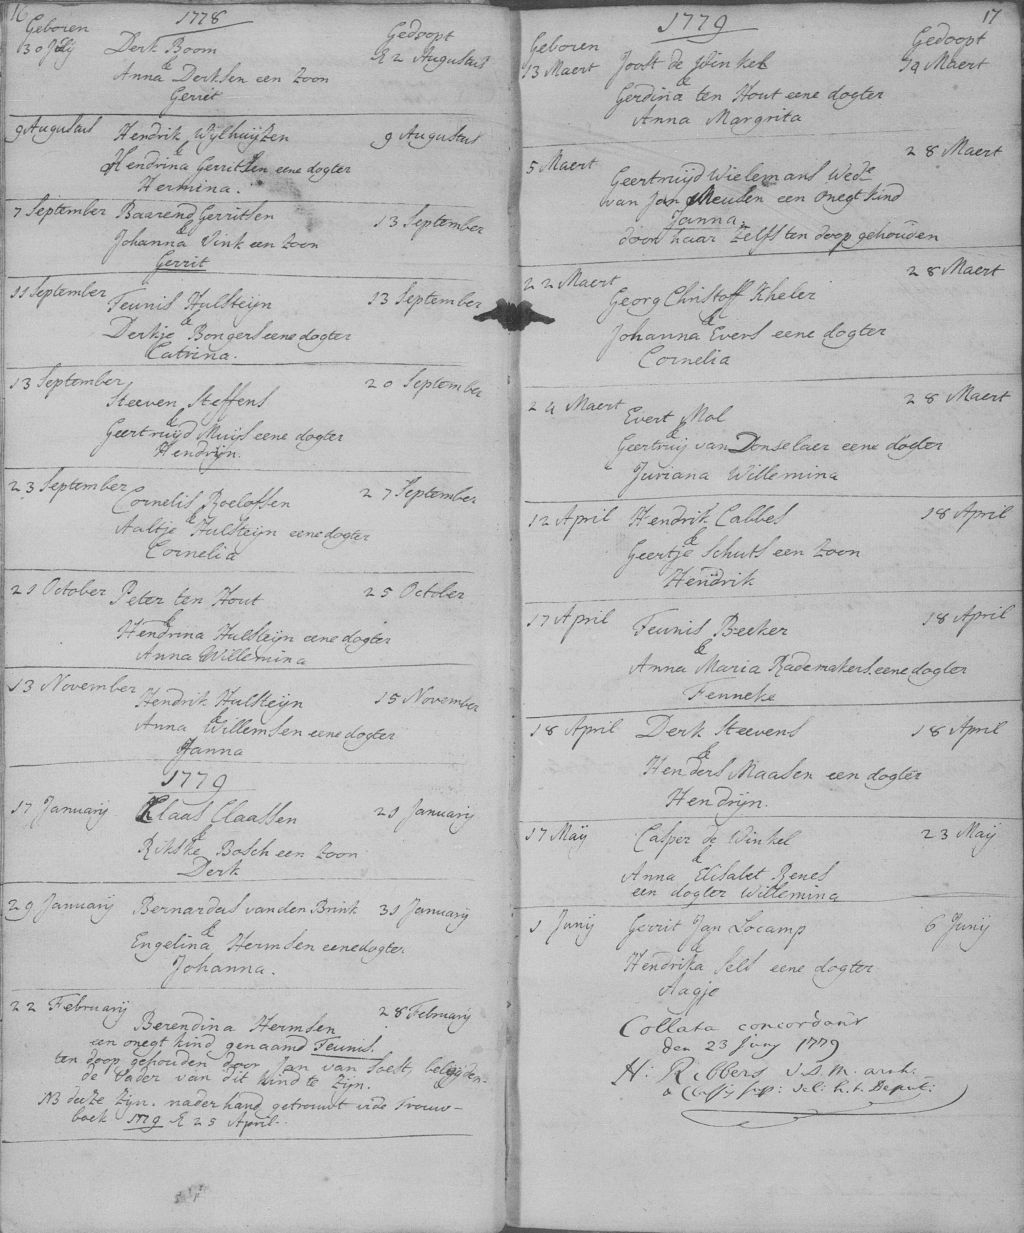 16
1778
Geboren
Gedoopt
30 July Derk Boom d 2 Augustus
&
Anna Derksen een Zoon
Gerrit
9 Augustus Hendrik Wylhuyzen 9 Augustus
&
Hendrina Gerritsen eene dogter
Hermina.
7 September Baarend Gerritsen 13 September
&
Johanna Vink een Zoon
Gerrit
11 September Teunis Hulsteijn 13 September
&
Derkje Bongers eene dogter
Catrina.
13 September Steeven Steffens 20 September
&
Geertruijd Muijs eene dogter
Hendrijn.
23 September Cornelis Roelofsen 27 September
&
Aaltje Hulsteijn eene dogter
Cornelia
21 October Peter ten Hout 25 October
&
Hendrina Hulsteijn eene dogter
Anna Willemina
13 November Hendrik Hulsteijn 15 November
&
Anna Willemsen eene dogter
Janna
1779
17 Januarij Klaas Claassen 21 Januarij
&
Rikske Bosch een Zoon
Derk
29 Januarij Bernardus van den Brink 31 Januarij
&
Engelina Hermsen eene dogter
Johanna.
22 Februarij 28 Februarij
Berendina Hermsen
een onegt kind genaamd Teunis.
ten doop gehouden door Jan van Soest, belijden-
de Vader van dit kind te zijn.
NB deeze zijn naderhand getrouwt vide Trouw-
boek 1779 d 25 April.
17
1779
Geboren
Gedoopt
13 Maert Joost de Winkel 14 Maert
&
Gerdina ten Hout eene dogter
Anna Margrita
5 Maert 28 Maert
Geertruijd Wielemans Wede
van Jan Meusen een onegt kind
Janna.
door haar Zelfs ten doop gehouden
22 Maert 28 Maert
Georg Christoff Kheler
&
Johanna Evers eene dogter
Cornelia
24 Maert Evert Mol 28 Maert
&
Geertruy van Donselaer eene dogter
Juriana Willemina
12 April Hendrik Cabbes 18 April
&
Geertje Schuts een Zoon
Hendrik
17 April Teunis Beeker 18 April
&
Anna Maria Rademakers eene dogter
Fenneke
18 April Derk Steevens 18 April
&
Henders Maasen een dogter
Hendrijn.
17 Maij Casper de Winkel 23 Maij
&
Anna Elisabet Renes
een dogter Willemina
1 Junij Gerrit Jan Locamp 6 Junij
&
Hendrika Sels eene dogter
Aagje
Collata concordant
den 23 Juny 1779
H: Ribbers V.D.M. arnh.